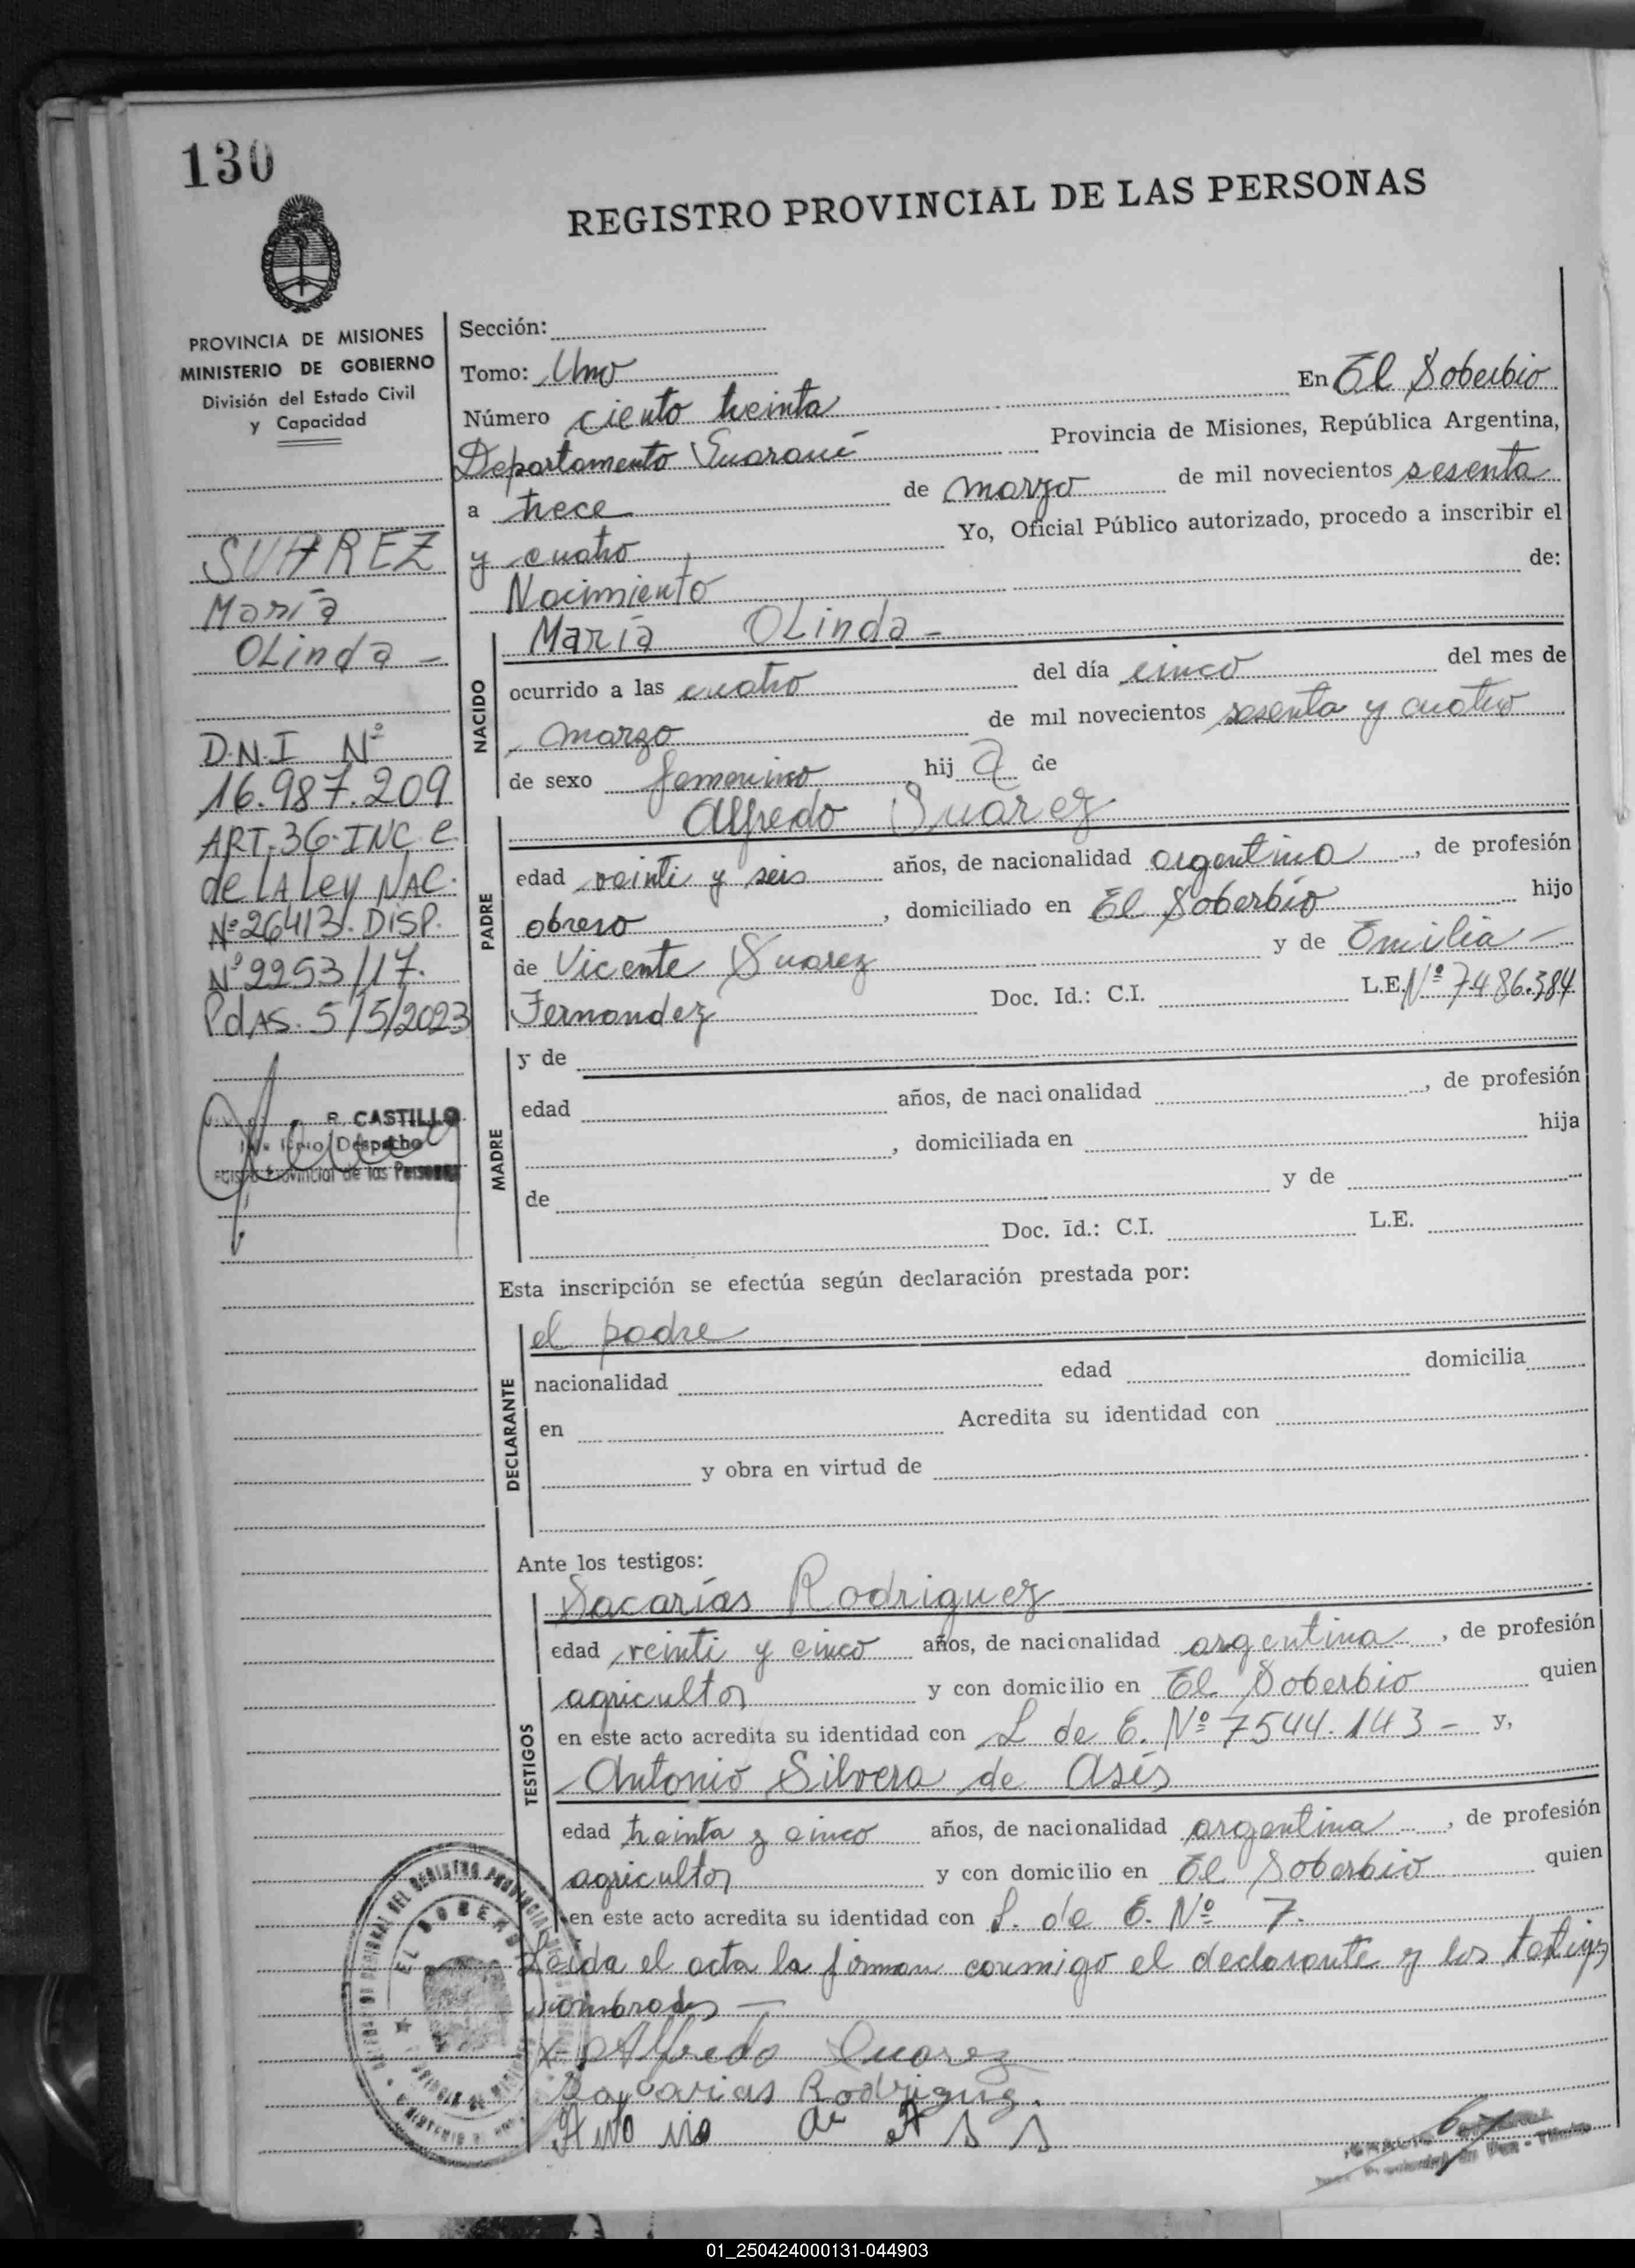 130
REGISTRO PROVINCIAL DE LAS PERSONAS
PROVINCIA DE MISIONES
MINISTERIO DE GOBIERNO
División del Estado Civil
y Capacidad
SUAREZ
María
OLinda -
D.N.I Nº
16.987.209
ART.36.INC e
de LA Ley NAC.
Nº26413. DISP.
Nº2253/17.
PdAS. 5/5/2023
R. CASTILLO
Despacho
Provincial de las Personas
Sección:
Tomo: Uno
Número ciento treinta En El Soberbio
Departamento Guaraní Provincia de Misiones, República Argentina,
a trece de marzo de mil novecientos sesenta
y cuatro Yo, Oficial Público autorizado, procedo a inscribir el
Nacimiento de:
NACIDO
María OLinda -
ocurrido a las cuatro del día cinco del mes de
marzo de mil novecientos sesenta y cuatro
de sexo femenino, hij a de
PADRE
Alfredo Suarez
edad veinti y seis años, de nacionalidad argentina, de profesión
obrero, domiciliado en El Soberbio hijo
de Vicente Suarez y de Emilia -
Fernandez Doc. Id.: C.I. L.E. Nº 7486.384
MADRE
y de
edad años, de nacionalidad , de profesión
, domiciliada en hija
de y de
Doc. Id.: C.I. L.E.
Esta inscripción se efectúa según declaración prestada por:
DECLARANTE
el padre
nacionalidad edad domicilia
en Acredita su identidad con
y obra en virtud de
Ante los testigos:
TESTIGOS
Sacarías Rodriguez
edad veinti y cinco años, de nacionalidad argentina, de profesión
agricultor y con domicilio en El Soberbio quien
en este acto acredita su identidad con L de E. Nº 7544.143 - y,
Antonio Silvera de Asís
edad treinta y cinco años, de nacionalidad argentina, de profesión
agricultor y con domicilio en El Soberbio quien
en este acto acredita su identidad con L. de E. Nº 7.
Leida el acta la firman conmigo el declarante y los testigos
nombrados -
Alfredo Suarez
Sacarias Rodriguez.
Antonio de Asis
EL SOBERBIO
01_250424000131-044903